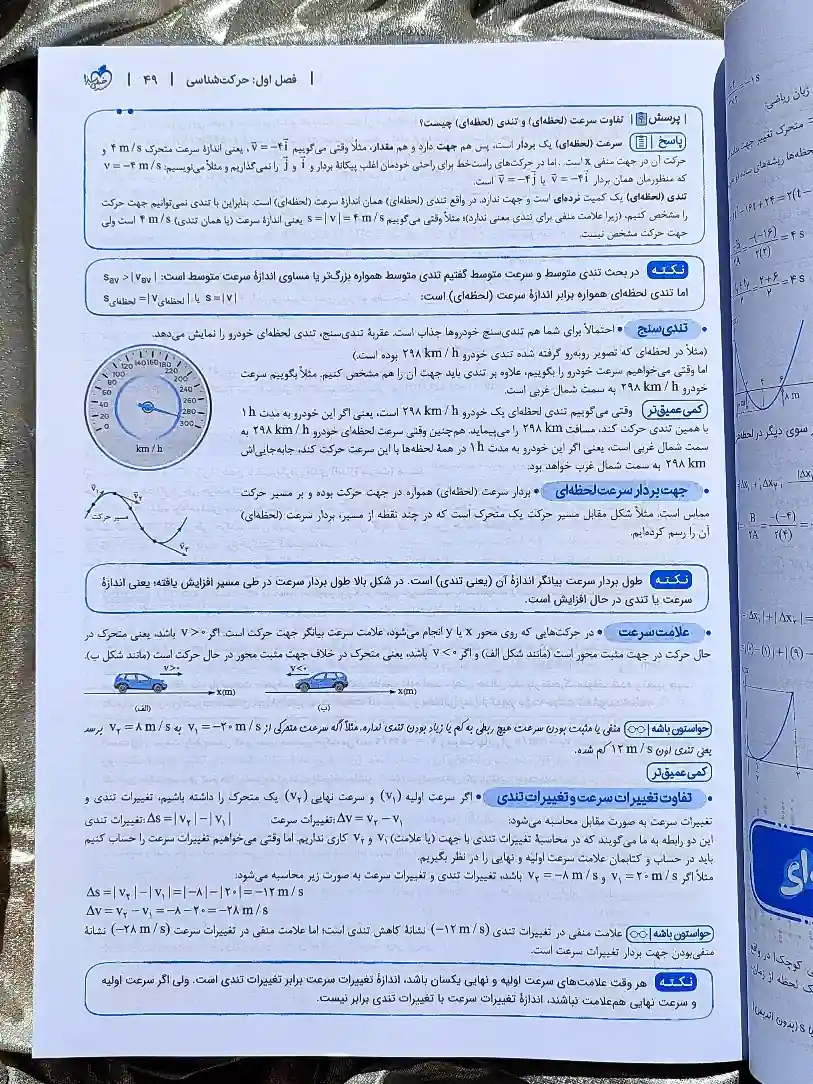 فصل اول: حرکت‌شناسی | ۴۹ |
پرسش | تفاوت سرعت (لحظه‌ای) و تندی (لحظه‌ای) چیست؟
پاسخ | سرعت (لحظه‌ای) یک بردار است، پس هم جهت دارد و هم مقدار. مثلاً وقتی می‌گوییم v⃗ = −۴i⃗، یعنی اندازهٔ سرعت متحرک ۴ m/s و
حرکت آن در جهت منفی x است. اما در حرکت‌های راست‌خط برای راحتی خودمان اغلب پیکانهٔ بردار و i⃗ و j⃗ را نمی‌گذاریم و مثلاً می‌نویسیم: v = −۴ m/s
که منظورمان همان بردار v⃗ = −۴i⃗ یا v⃗ = −۴j⃗ است.
تندی (لحظه‌ای) یک کمیت نرده‌ای است و جهت ندارد. در واقع تندی (لحظه‌ای) همان اندازهٔ سرعت (لحظه‌ای) است. بنابراین با تندی نمی‌توانیم جهت حرکت
را مشخص کنیم، (زیرا علامت منفی برای تندی معنی ندارد)؛ مثلاً وقتی می‌گوییم s = |v| = ۴ m/s یعنی اندازهٔ سرعت (یا همان تندی) ۴ m/s است ولی
جهت حرکت مشخص نیست.
نکته در بحث تندی متوسط و سرعت متوسط گفتیم تندی متوسط همواره بزرگ‌تر یا مساوی اندازهٔ سرعت متوسط است: sav ≥ |vav|
اما تندی لحظه‌ای همواره برابر اندازهٔ سرعت (لحظه‌ای) است: s = |v| یا |لحظه‌ای v| = لحظه‌ای s
• تندی‌سنج • احتمالاً برای شما هم تندی‌سنج خودروها جذاب است. عقربهٔ تندی‌سنج، تندی لحظه‌ای خودرو را نمایش می‌دهد.
(مثلاً در لحظه‌ای که تصویر روبه‌رو گرفته شده تندی خودرو ۲۹۸ km/h بوده است.)
اما وقتی می‌خواهیم سرعت خودرو را بگوییم، علاوه بر تندی باید جهت آن را هم مشخص کنیم. مثلاً بگوییم سرعت
خودرو ۲۹۸ km/h به سمت شمال غربی است.
کمی عمیق‌تر وقتی می‌گوییم تندی لحظه‌ای یک خودرو ۲۹۸ km/h است، یعنی اگر این خودرو به مدت ۱ h
با همین تندی حرکت کند، مسافت ۲۹۸ km را می‌پیماید. هم‌چنین وقتی سرعت لحظه‌ای خودرو ۲۹۸ km/h به
سمت شمال غربی است، یعنی اگر این خودرو به مدت ۱ h در همهٔ لحظه‌ها با این سرعت حرکت کند، جابه‌جایی‌اش
۲۹۸ km به سمت شمال غرب خواهد بود.
0 20 40 60 80 100 120 140 160 180 220 200 240 260 280 300
km/h
• جهت بردار سرعت لحظه‌ای • بردار سرعت (لحظه‌ای) همواره در جهت حرکت بوده و بر مسیر حرکت
مماس است. مثلاً شکل مقابل مسیر حرکت یک متحرک است که در چند نقطه از مسیر، بردار سرعت (لحظه‌ای)
آن را رسم کرده‌ایم.
v⃗۱ v⃗۲
مسیر حرکت
v⃗۳
نکته طول بردار سرعت بیانگر اندازهٔ آن (یعنی تندی) است. در شکل بالا طول بردار سرعت در طی مسیر افزایش یافته؛ یعنی اندازهٔ
سرعت یا تندی در حال افزایش است.
• علامت سرعت • در حرکت‌هایی که روی محور x یا y انجام می‌شود، علامت سرعت بیانگر جهت حرکت است. اگر v > ۰ باشد، یعنی متحرک در
حال حرکت در جهت مثبت محور است (مانند شکل الف) و اگر v < ۰ باشد، یعنی متحرک در خلاف جهت مثبت محور در حال حرکت است (مانند شکل ب).
v>۰ v<۰
x(m) x(m)
(الف) (ب)
حواستون باشه | منفی یا مثبت بودن سرعت هیچ ربطی به کم یا زیاد بودن تندی نداره. مثلاً اگه سرعت متحرکی از v۱ = −۲۰ m/s به v۲ = ۸ m/s برسد
یعنی تندی اون ۱۲ m/s کم شده.
کمی عمیق‌تر
• تفاوت تغییرات سرعت و تغییرات تندی • اگر سرعت اولیه (v۱) و سرعت نهایی (v۲) یک متحرک را داشته باشیم، تغییرات تندی و
تغییرات سرعت به صورت مقابل محاسبه می‌شود: تغییرات سرعت: Δv = v۲ − v۱ تغییرات تندی: Δs = |v۲| − |v۱|
این دو رابطه به ما می‌گویند که در محاسبهٔ تغییرات تندی با جهت (یا علامت) v۱ و v۲ کاری نداریم. اما وقتی می‌خواهیم تغییرات سرعت را حساب کنیم
باید در حساب و کتابمان علامت سرعت اولیه و نهایی را در نظر بگیریم.
مثلاً اگر v۱ = ۲۰ m/s و v۲ = −۸ m/s باشد، تغییرات تندی و تغییرات سرعت به صورت زیر محاسبه می‌شود:
Δs = |v۲| − |v۱| = |−۸| − |۲۰| = −۱۲ m/s
Δv = v۲ − v۱ = −۸ − ۲۰ = −۲۸ m/s
حواستون باشه | علامت منفی در تغییرات تندی (−۱۲ m/s) نشانهٔ کاهش تندی است؛ اما علامت منفی در تغییرات سرعت (−۲۸ m/s) نشانهٔ
منفی‌بودن جهت بردار تغییرات سرعت است.
نکته هر وقت علامت‌های سرعت اولیه و نهایی یکسان باشد، اندازهٔ تغییرات سرعت برابر تغییرات تندی است. ولی اگر سرعت اولیه
و سرعت نهایی هم‌علامت نباشند، اندازهٔ تغییرات سرعت با تغییرات تندی برابر نیست.